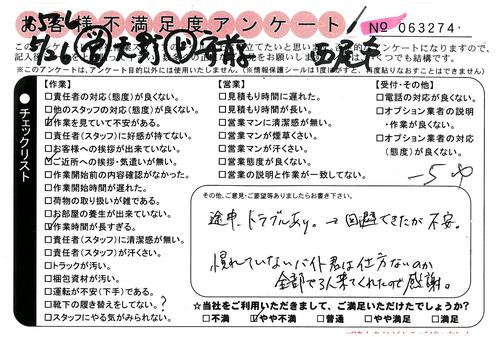 お客様不満足度アンケート
No 063274
※このアンケートは、アンケート目的以外には使用いたしません。(※情報保護シールは1度はがすと、再度貼りなおすことはできません)
●チェックリスト
【作業】
□責任者の対応(態度)が良くない。
□他のスタッフの対応(態度)が良くない。
☑作業を見ていて不安がある。
□責任者(スタッフ)に好感が持てない。
☑お客様への挨拶が出来ていない。
☑ご近所への挨拶・気遣いが無い。
□作業開始前の内容確認がなかった。
□作業開始時間が遅れた。
□荷物の取り扱いが雑である。
□お部屋の養生が出来ていない。
☑作業時間が長すぎる。
□責任者(スタッフ)に清潔感が無い。
□責任者(スタッフ)が汗くさい。
□トラックが汚い。
□梱包資材が汚い。
□運転が不安(下手)である。
□靴下の履き替えをしてない。?
□スタッフにやる気がみられない。
【営業】
□見積もり時間に遅れた。
□見積もり時間が長い。
□営業マンに清潔感が無い。
□営業マンが煙草くさい。
□営業マンが汗くさい。
□営業態度が良くない。
□営業の説明と作業が一致してない。
【受付・その他】
□電話の対応が良くない。
□オプション業者の説明
・作業が良くない。
□オプション業者の対応
(態度)が良くない。
その他、ご意見・ご要望等ありましたらお書き下さい。
途中トラブルあり。→回避できたが不安。
慣れていないバイト君は仕方ないのか
全部で3人来てくれたので感謝。
☆当社をご利用いただきまして、ご満足いただけたでしょうか?
□不満 ☑やや不満 □普通 □やや満足 □満足